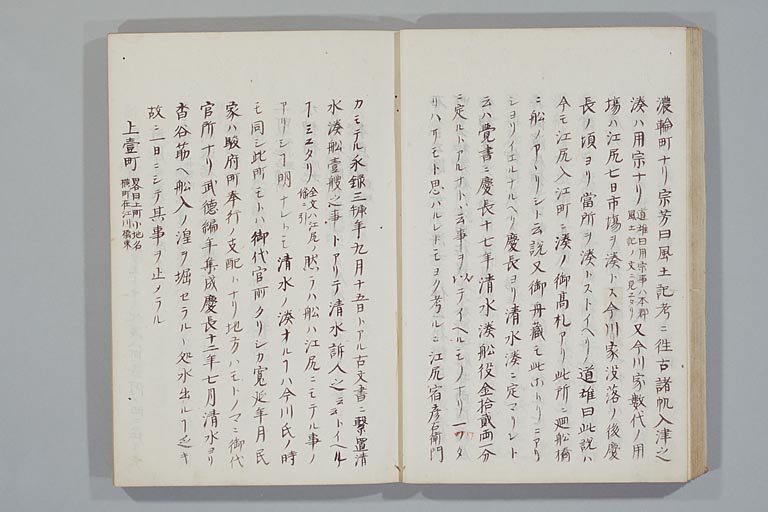 濃輪町ナリ宗芳曰風土記考ニ徃古諸帆入津之
湊ハ用宗ナリ道雄曰用宗事ハ本郡風土記ノ文ニ見エタリ又今川家数代ノ用
場ハ江尻七日市場ヲ湊トス今川家没落ノ後慶
長ノ頃ヨリ當所ヲ湊トストイヘリ道雄曰此説ハ
今モ江尻入江町ニ湊ノ御高札アリ此所ニ廻舩橋
ニ舩ノアヽリシト云説又御舟蔵モ此ホトリニアリ
ショリイエルナルヘシ慶長ヨリ清水湊ニ定マリシト
云ハ覺書ニ慶長十七年清水湊舩役金拾貳両一分
ニ定ルトアルナト云事ヲ以テイヘルモノナリ
リハサモト思ハルレトモヨク考ルニ江尻宿彦右衛門
カモテル永禄三年九月十五日トアル古文書ニ繋置清
水湊舩壹艘之事トアリテ清水訴人之云々トイヘル
ヿミエタリ全文ハ江尻ノ條ニ引然ラハ舩ハ江尻ニモテル事ノ
アリシヿ明ナレトモ清水ノ湊ナルヿハ今川氏ノ時
モ同シ此所モトハ御代官所タリシカ寛延年月民
家ハ駿府町奉行ノ支配トナリ地方ハモトノマヽ御代
官所ナリ武徳編年集成慶長十二年七月清水ヨリ
沓谷筋ヘ舩入ノ湟ヲ堀セラルヽ処水出ルヿ近キ
故ニ一日ニシテ其事ヲ止メラル
上壹町畧曰上町小地名横町在江川橋東